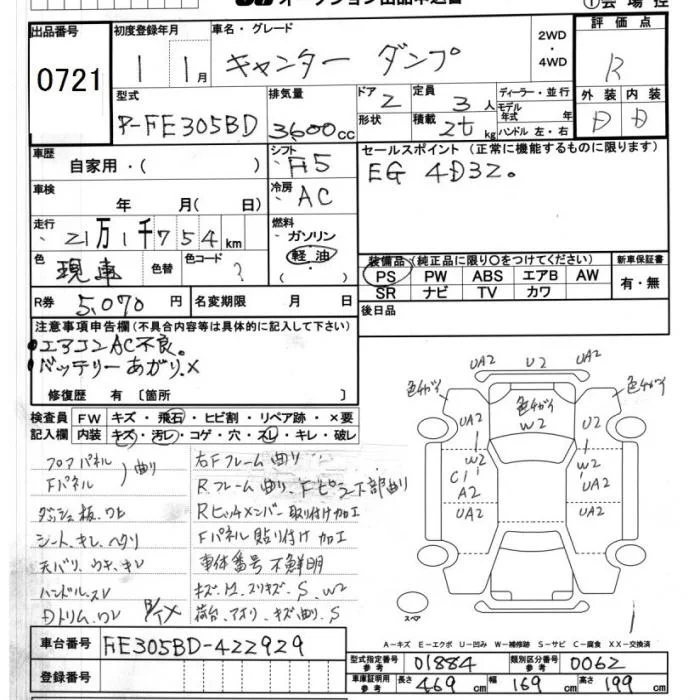 オークション出品申込書
①会場控
出品番号 初度登録年月 車名・グレード 2WD・4WD 評価点
0721 1 1月 キャンター ダンプ R
型式 排気量 ドア 2 定員 3人 ディーラー・並行 外装 内装
P-FE305BD 3600cc 形状 積載 2t kg モデル年式 年 ハンドル 左・右 D D
車歴 自家用・( ) シフト F5 セールスポイント (正常に機能するものに限ります)
車検 年 月( 日) 冷房 AC EG 4D32。
走行 21万1千754km 燃料 ガソリン 軽油
色 現車 色替 色コード ? 装備品(純正品に限り○をつけてください) 新車保証書
PS PW ABS エアB AW 有・無
SR ナビ TV カワ
R券 5,070円 名変期限 月 日 後日品
注意事項申告欄(不具合内容等は具体的に記入して下さい)
・エアコンAC不良。
・バッテリーあがり.×
修復歴 有 〔箇所 〕
検査員 FW キズ・飛石・ヒビ割・リペア跡・×要
記入欄 内装 キズ・汚レ・コゲ・穴・スレ・キレ・破レ
フロアパネル 曲り
Fパネル
ダッシュ板.ワレ
シート.キレ.ヘタリ
天バリ.ウキ.キレ
ハンドル.スレ
Dトリム.ワレ
右Fフレーム曲り
Rフレーム曲り.Fピラー下部曲り
Rヒッチメンバー取り付け加工
Fパネル貼り付け加工
車体番号不鮮明
キズ.凹.スリキズ.S.W2
荷台.アオリ.キズ曲り.S
UA2 U2 UA2
色チガイ 色チガイ 色チガイ
W2
UA2 U2
W2 W2
C1 UA2
A2
UA2 UA2
スペア
A-キズ E-エクボ U-凹み W-補修跡 S-サビ C-腐食 XX-交換済
車台番号 FE305BD-422929
型式指定番号 参考 01884 類別区分番号 参考 0062
登録番号 車庫証明用 参考 長さ 469cm 幅 169cm 高さ 199cm